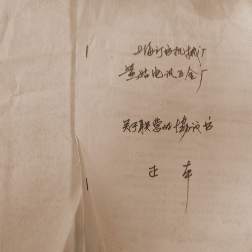 上海订书机械厂
盐城电讯五金厂
关于联营的协议书
正本